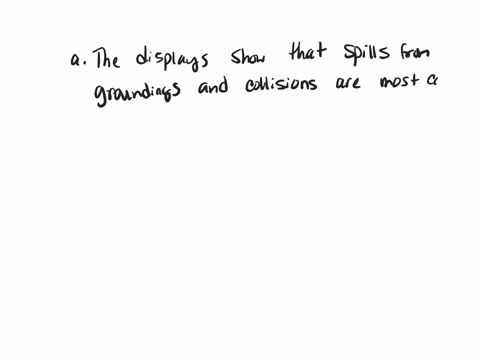 a. The displays show that spills from
groundings and collisions are most